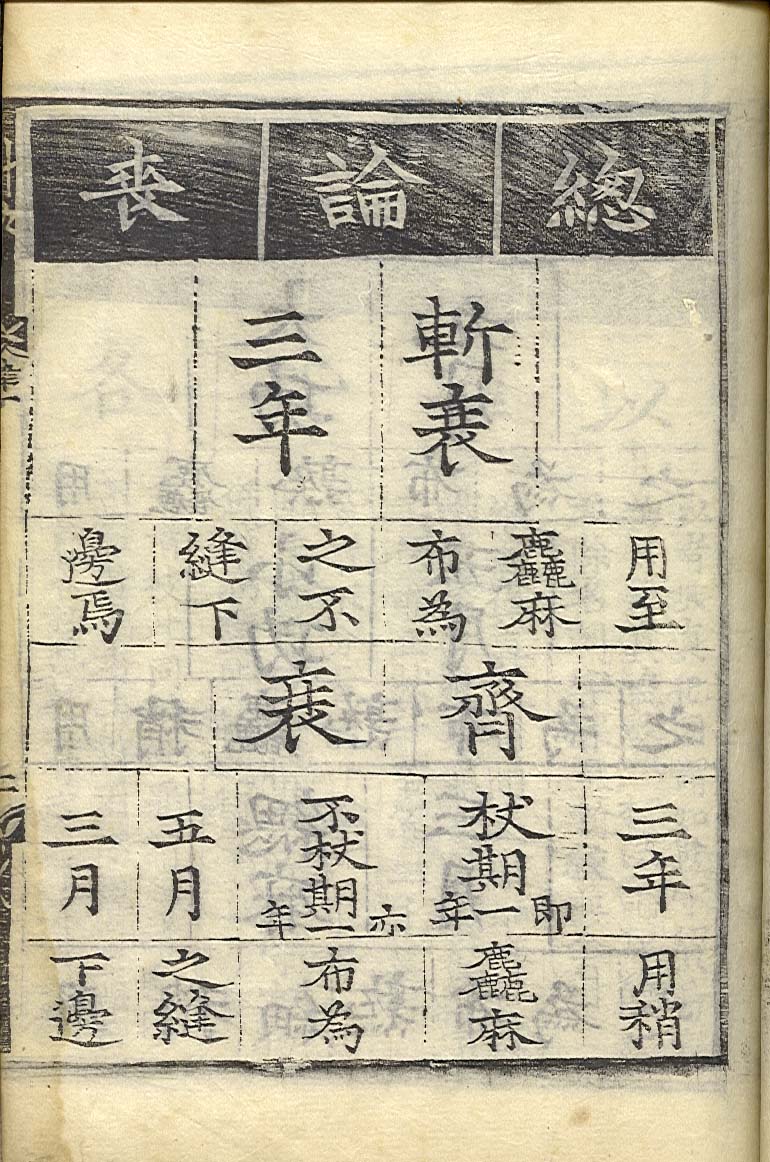 總論喪
斬衰
三年
用至
麤麻
布為
之不
縫下
邊焉
齊衰
三年
杖期 即一年
不杖期 亦一年
五月
三月
用稍
麤麻
布為
之縫
下邊